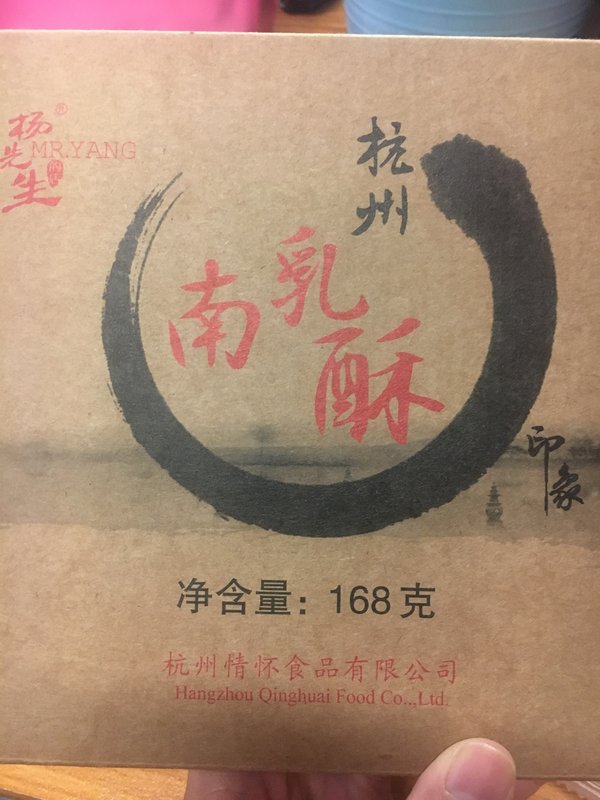 杨先生®
MR.YANG
杭州
南乳酥
印象
净含量：168克
杭州情怀食品有限公司
Hangzhou Qinghuai Food Co.,Ltd.